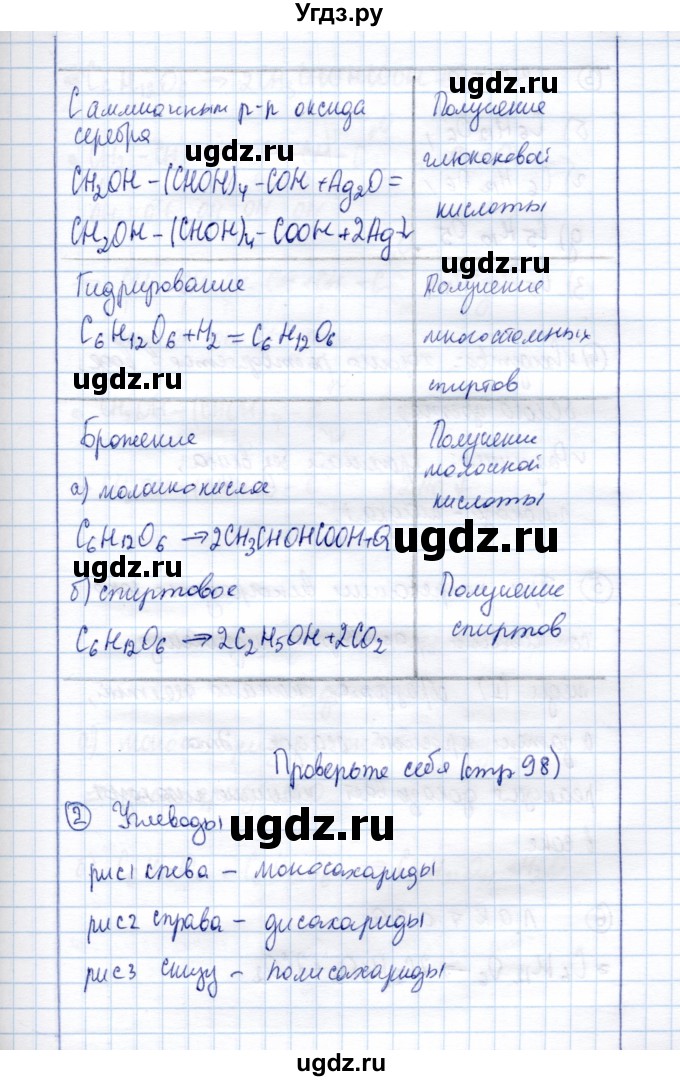 Угдз.ру
ugdz.ru
С аммиачным р-р оксида
серебра
ugdz.ru
CH₂OH – (CHOH)₄ – COH + Ag₂O =
CH₂OH – (CHOH)₄ – COOH + 2Ag↓
ugdz.ru
Получение
глюконовой
кислоты
Гидрирование
C₆H₁₂O₆ + H₂ = C₆H₁₂O₆
ugdz.ru
ugdz.ru
Получение
многоатомных
спиртов
Брожение
а) молочнокислое
C₆H₁₂O₆ → 2CH₃CHOHCOOH + Q
ugdz.ru
Получение
молочной
кислоты
ugdz.ru
б) спиртовое
C₆H₁₂O₆ → 2C₂H₅OH + 2CO₂
Получение
спиртов
ugdz.ru
Проверьте себя (стр 98)
2 Углеводы
ugdz.ru
рис1 слева – моносахариды
рис2 справа – дисахариды
рис3 снизу – полисахариды
ugdz.ru
ugdz.ru